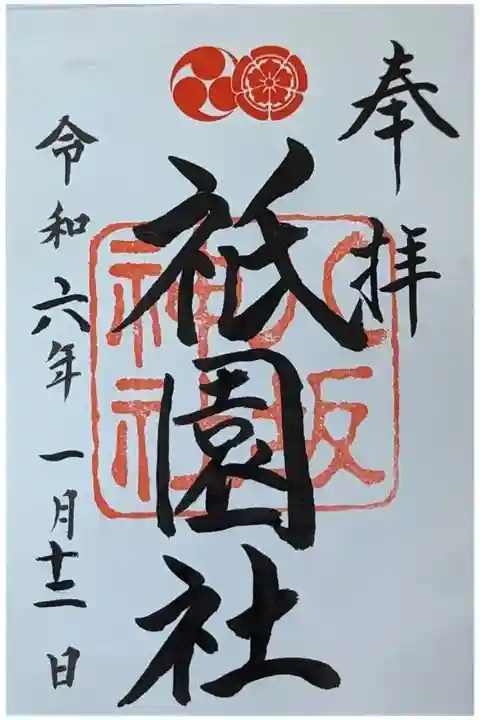 奉拝
祇園社
八坂神社
令和六年一月十二日